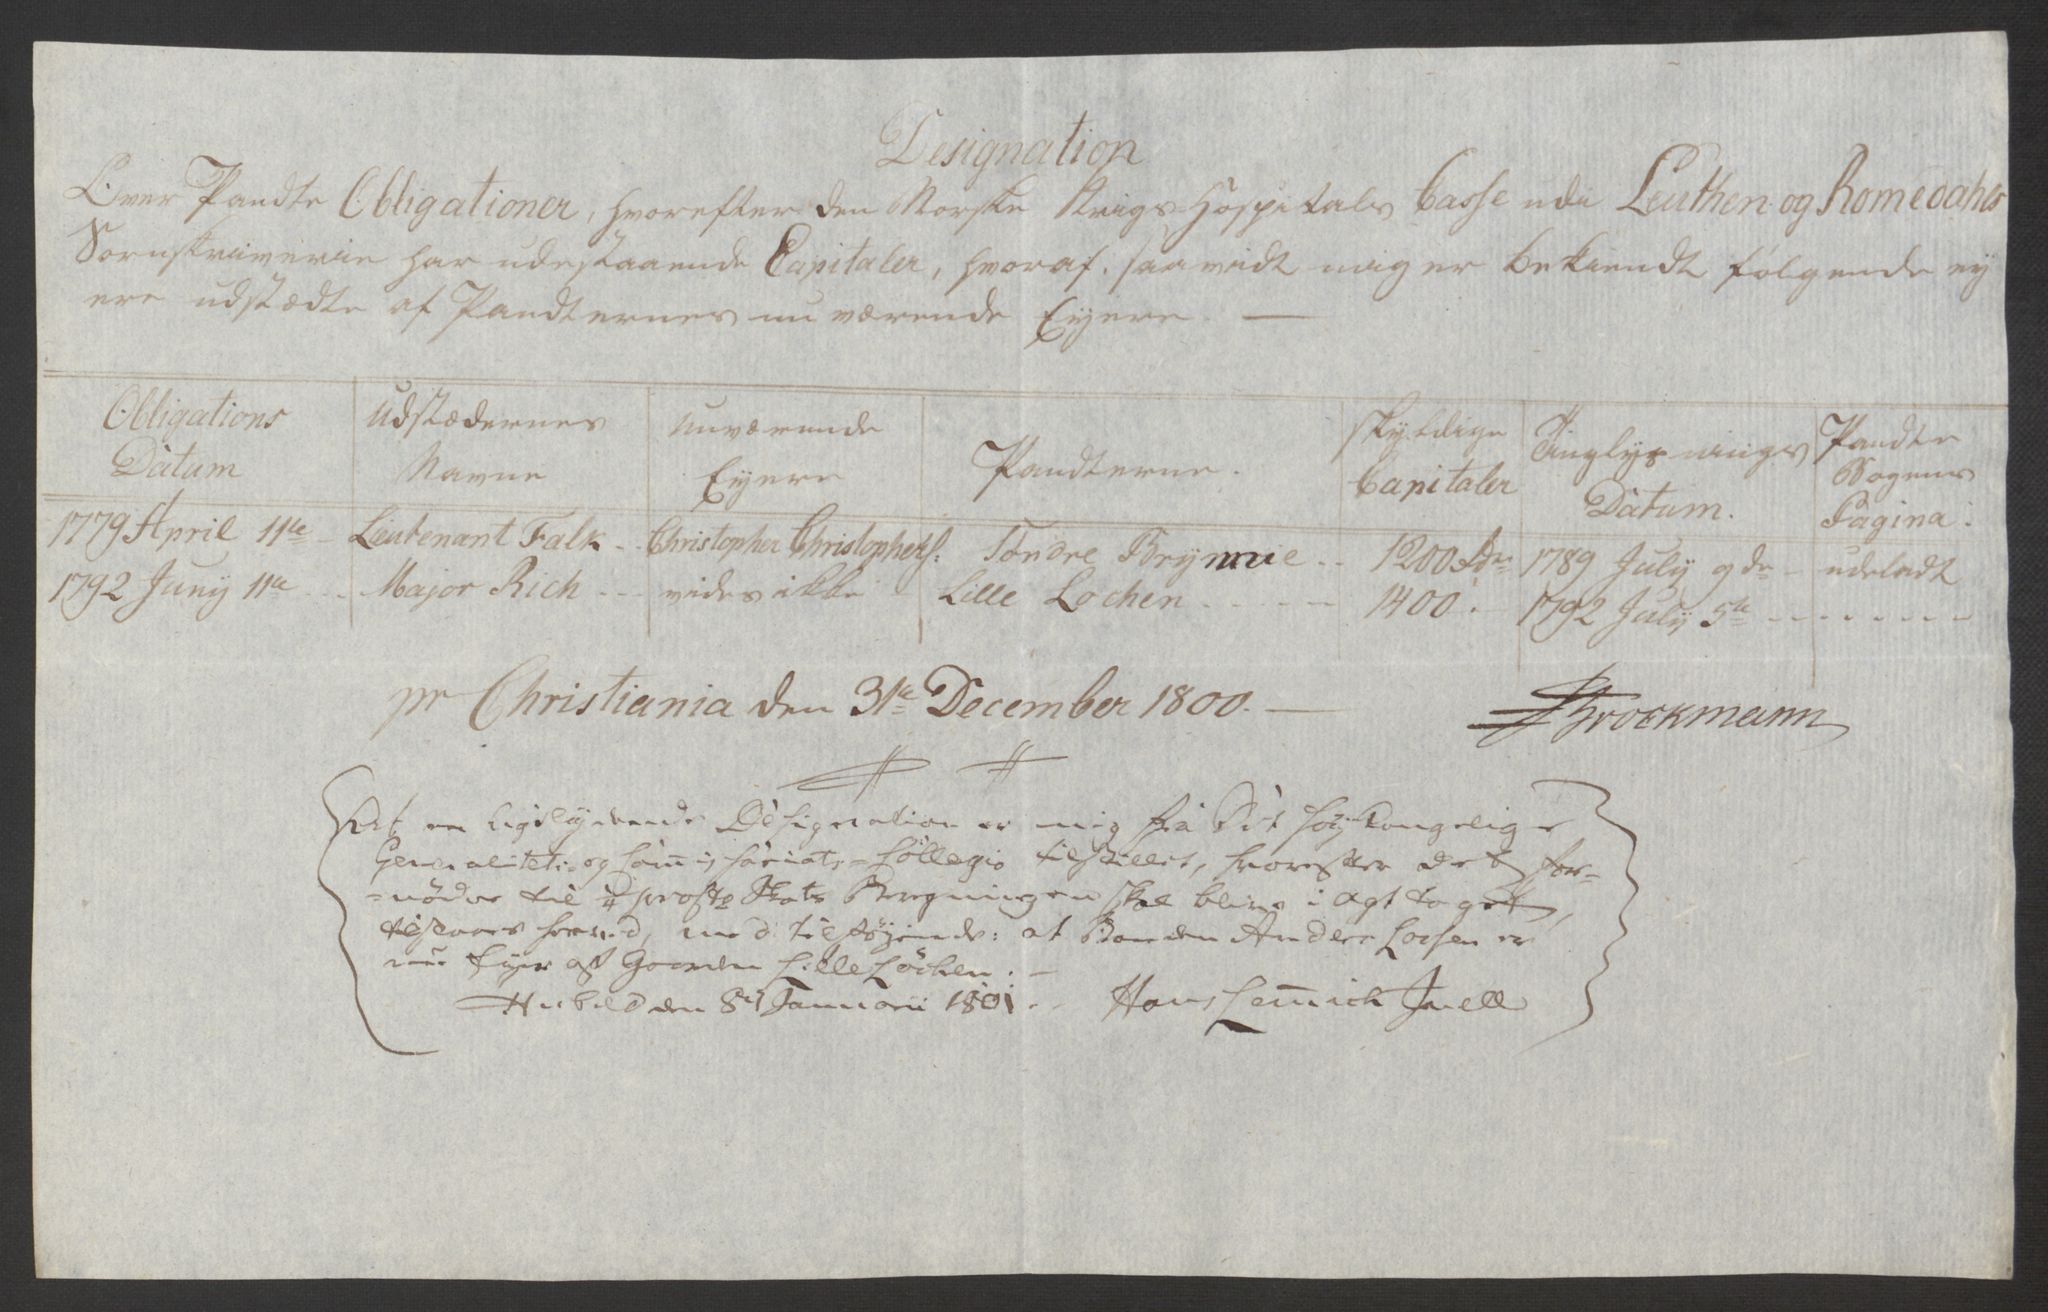 Designation
Over Pandte Obligationer, hvorefter den Norske Krigs Hospitals Casse udi Leuthen og Romedahls
Sorenskriverie har udestaaende Capitaler, hvoraf, saavidt mig er bekiendt følgende ey
ere udstædte af Pandternes nu værende Eyere. —
Obligations Datum | Udstædernes Navne | nuværende Eyere | Pandterne. | skyldige Capitaler | Tinglysnings Datum. | Pandte Bogens Pagina.
1779 April 11te – Leutenant Falk .. Christopher Christophers: Tøndre Brynnie .. 1200 Rdr 1789 July 9de – udeladt
1792 Juny 11te ... Major Rich ... vides ikke Lille Lochen ..... 1400. – 1792 July 5te .......
pr Christiania den 31te December 1800. —
Brockmann
At en ligelydende Designation er mig fra Det høykongelige
Generalitets- og Com̅issariats-Collegio tilstillet, hvorefter det for-
=nødne til Skats Beregningen skal blive i agt taget,
tilstaaes herved, med tilføyende: at Bonden Anders Larsen er
nu Eyer af Gaarden Lille Løchen. –
Hubeld den 8de Januarii 1801. Hans Lem̅ich Juell